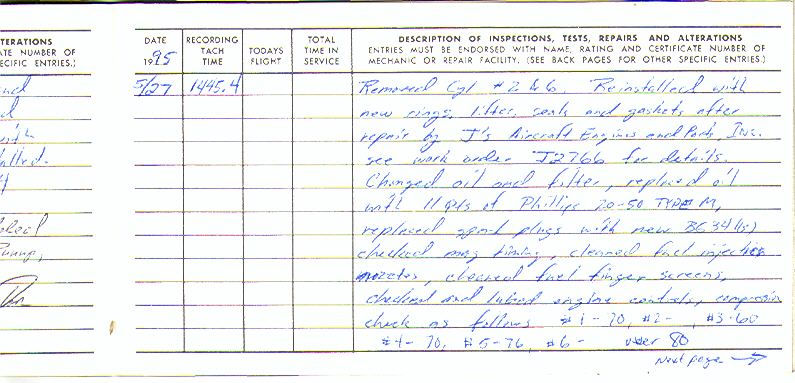 TERATIONS
ATE NUMBER OF
ECIFIC ENTRIES.)
DATE
1995
RECORDING
TACH
TIME
TODAYS
FLIGHT
TOTAL
TIME IN
SERVICE
DESCRIPTION OF INSPECTIONS, TESTS, REPAIRS AND ALTERATIONS
ENTRIES MUST BE ENDORSED WITH NAME, RATING AND CERTIFICATE NUMBER OF
MECHANIC OR REPAIR FACILITY. (SEE BACK PAGES FOR OTHER SPECIFIC ENTRIES.)
5/27 1445.4 Removed Cyl # 2 & 6. Reinstalled with
new rings, lifter, seals and gaskets after
repair by J's Aircraft Engines and Parts, Inc.
see work order J2766 for details.
Changed oil and filter, replaced oil
with 11 qts of Phillips 20-50 TYPE M,
replaced spark plugs with new
checked mag timing, cleaned fuel injection
nozzles, cleaned fuel finger screens,
checked and lubed engine controls, compression
check as follows #1-70, #2- , #3-60
#4-70, #5-76, #6- over 80
Next page →